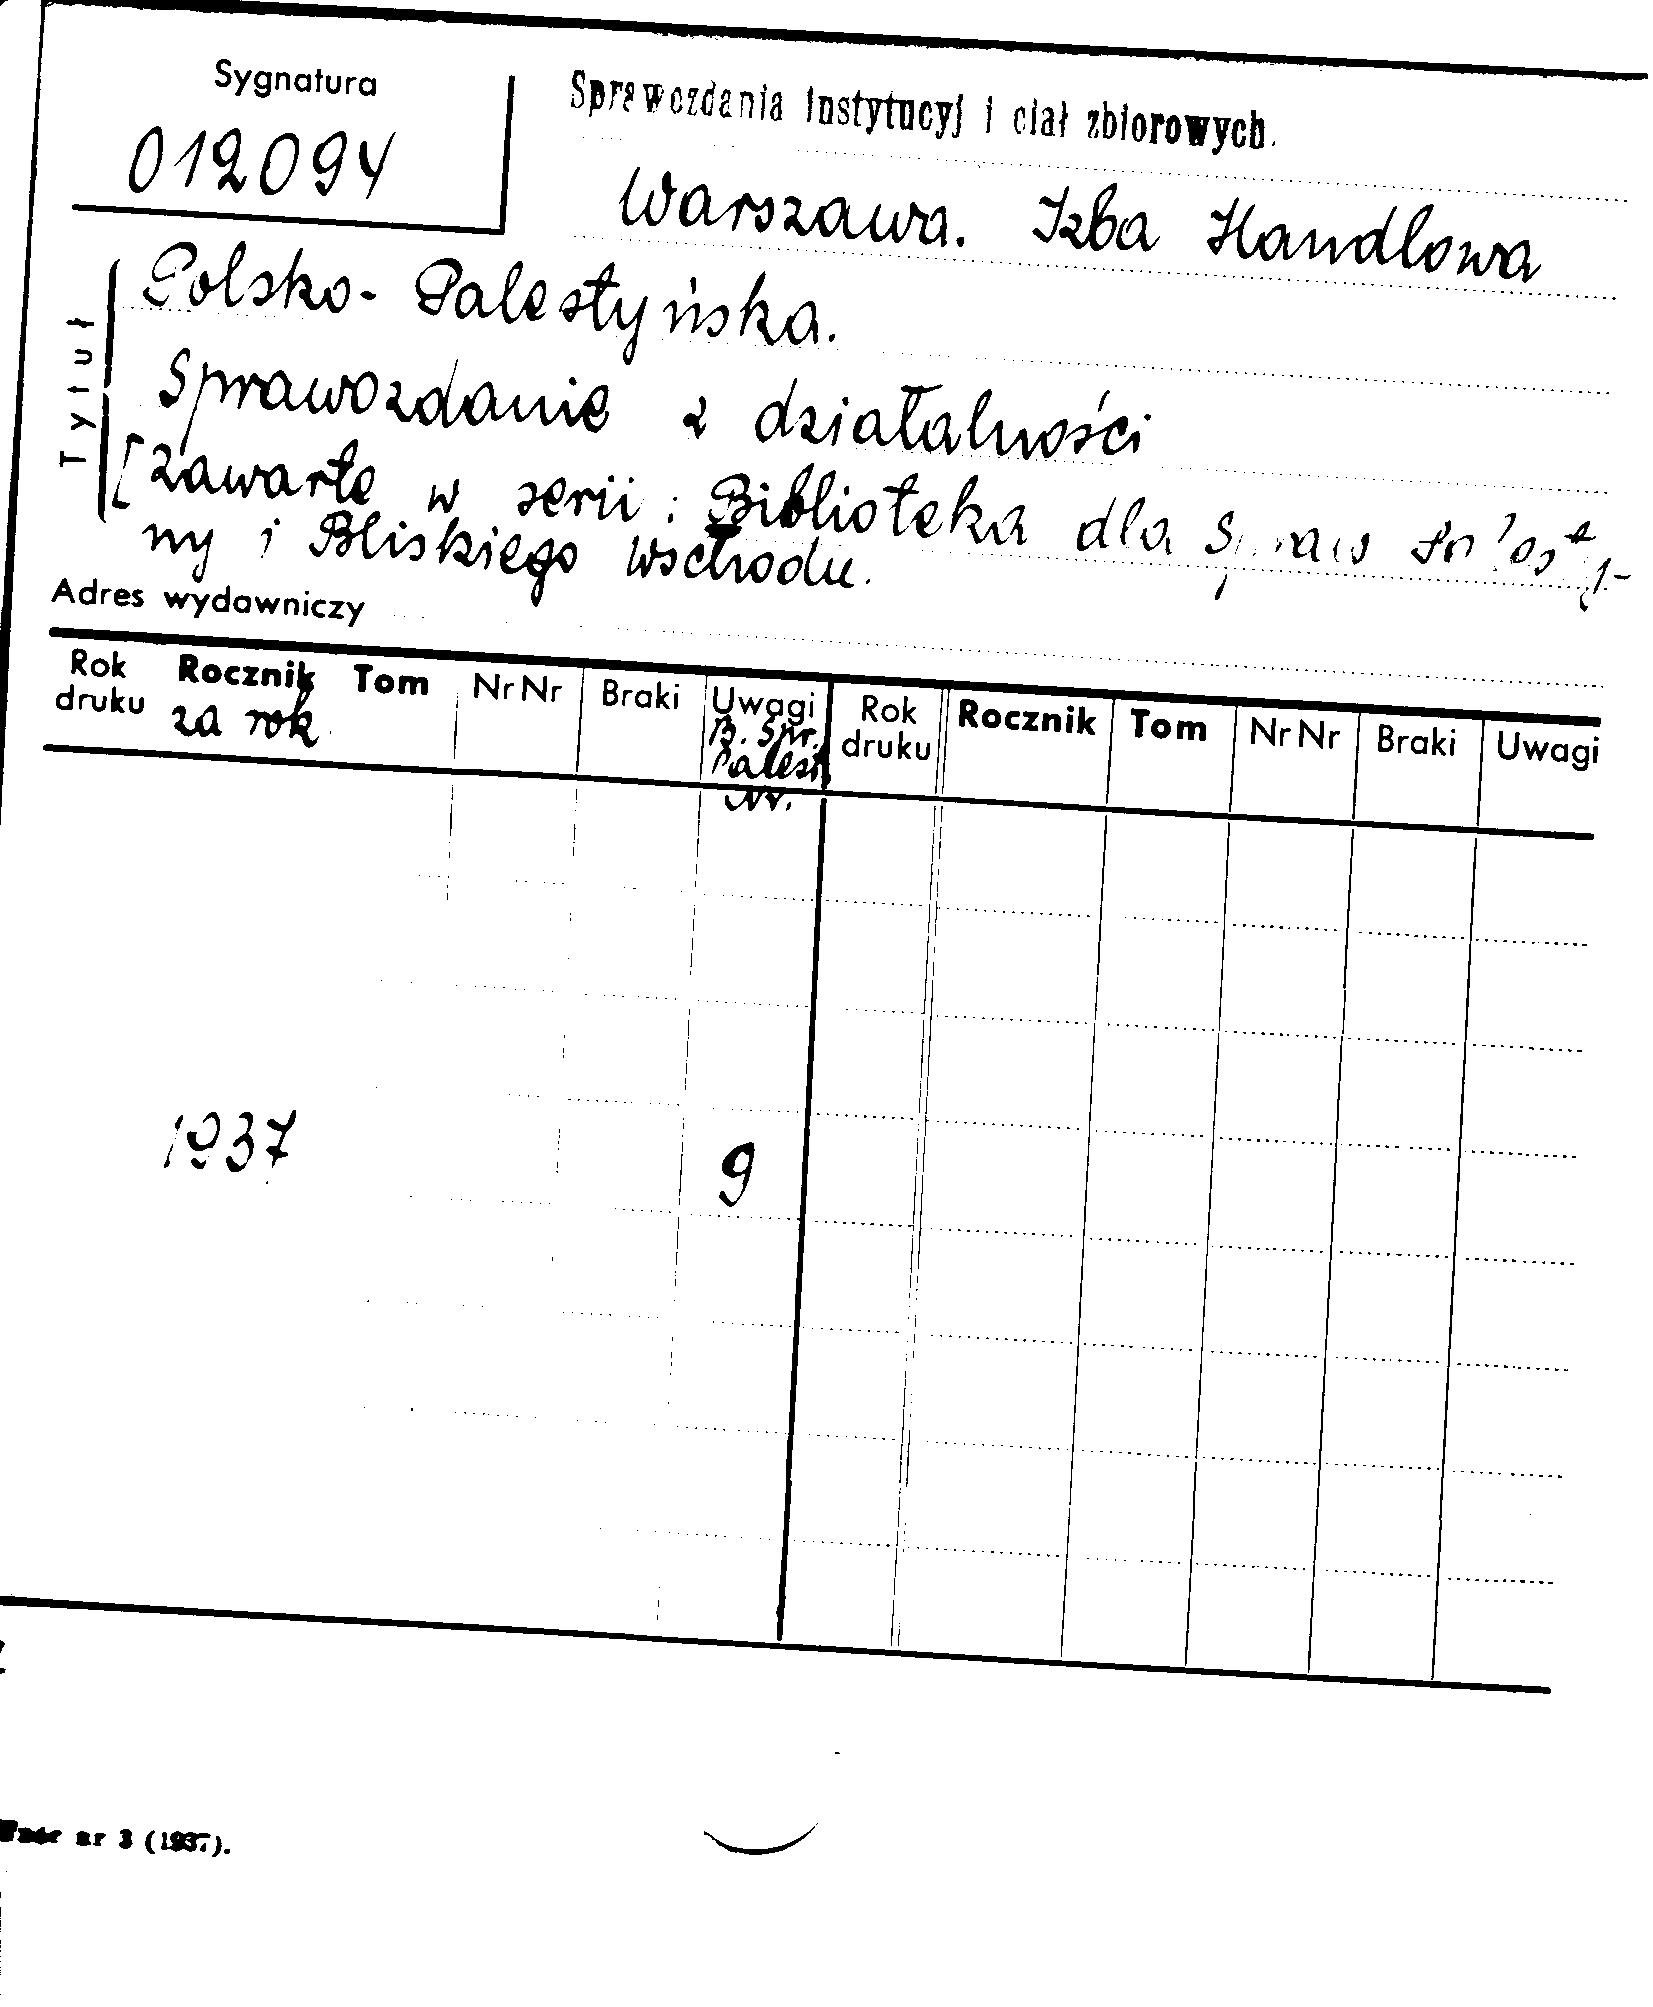 Sygnatura
Sprawozdania instytucyj i ciał zbiorowych.
012094
Warszawa. Izba Handlowa
Polsko-Palestyńska.
Tytuł
Sprawozdanie z działalności
[zawarte w serii: Biblioteka dla Spraw
ny i Bliskiego Wschodu.
Adres wydawniczy
Rok druku Rocznik Tom NrNr Braki Uwagi Rok druku Rocznik Tom NrNr Braki Uwagi
za rok B. Spr. Palest. Nr.
1937 9
Wzór nr 3 (1937).